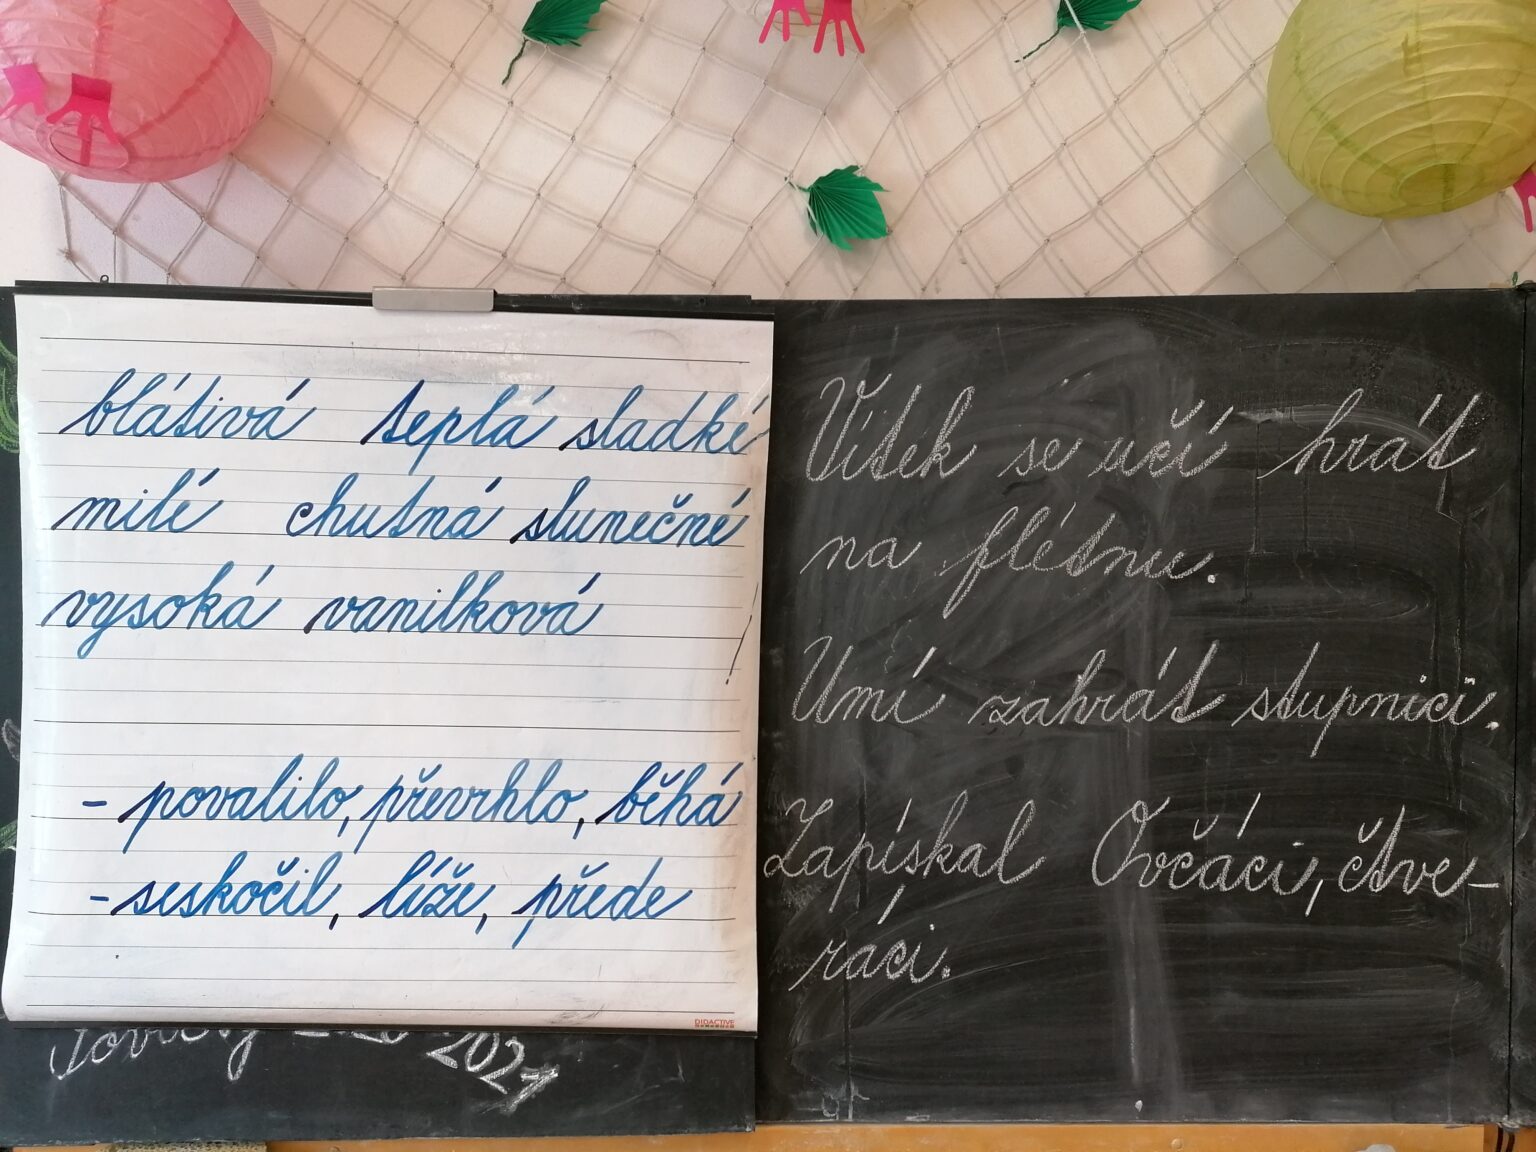 blátivá teplá sladké
milé chutná slunečné
vysoká vanilková
- povalilo, převrhlo, běhá
- seskočil, líže, přede
DIDACTIVE
2021
Vítek se učí hrát
na flétnu.
Umí zahrát stupnici.
Zapískal Ovčáci, čtve-
ráci.